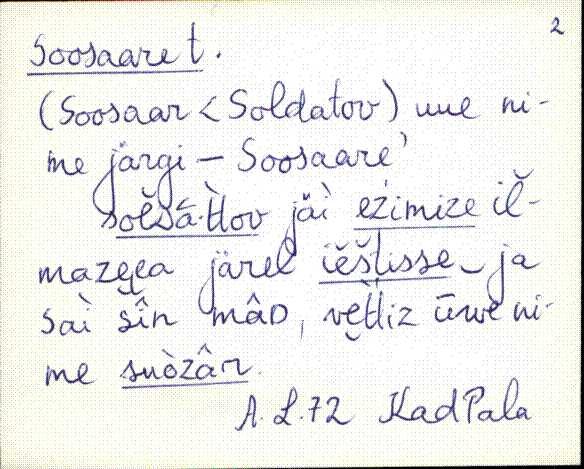 2
Soosaare t.
(Soosaar < Soldatov) uue ni-
me järgi – Soosaare'
solšsà·t̀tov jäì ežimize iĺ-
mazęęa järel iěšt́isse ja
saì šîn mâD, vęt̀tiz ūwe ni-
me suòzâr.
A. L. 72 KadPala